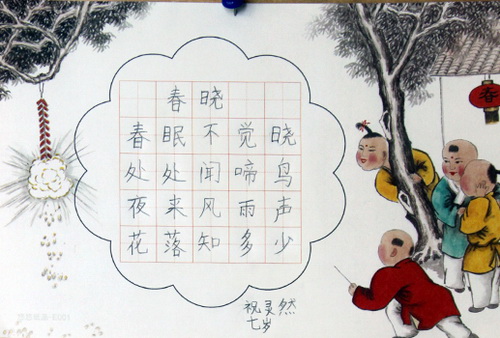 春晓
春眠不觉晓
处处闻啼鸟
夜来风雨声
花落知多少
祝灵然
七岁
春